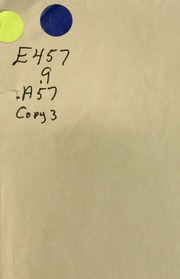 E457
.9
.A57
Copy 3